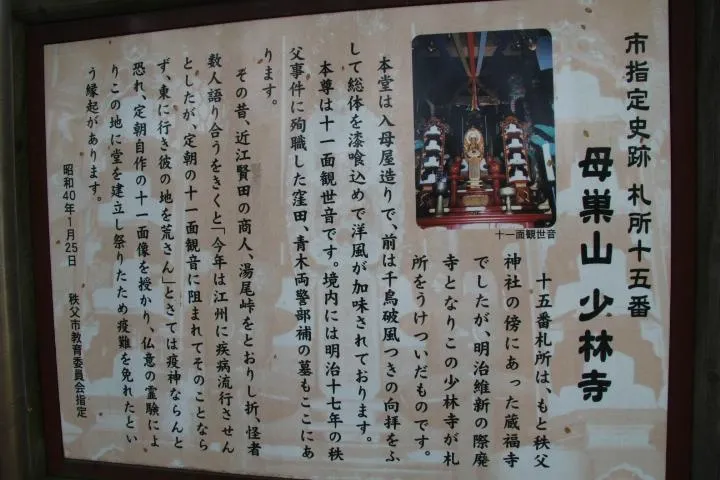 市指定史跡 札所十五番
母巣山 少林寺
十五番札所は、もと秩父
神社の傍にあった蔵福寺
でしたが、明治維新の際廃
寺となりこの少林寺が札
所をうけついだものです。
十一面観世音
本堂は入母屋造りで、前は千鳥破風つきの向拝をふ
して総体を漆喰込めで洋風が加味されております。
本尊は十一面観世音です。境内には明治十七年の秩
父事件に殉職した窪田、青木両警部補の墓もここにあ
ります。
その昔、近江賢田の商人、湯尾峠をとおりし折、怪者
数人語り合うをきくと「今年は江州に疾病流行させん
としたが、定朝の十一面観音に阻まれてそのことなら
ず、東に行き彼の地を荒さん」とさては疫神ならんと
恐れ、定朝自作の十一面像を授かり、仏意の霊験によ
りこの地に堂を建立し祭りたため疫難を免れたとい
う縁起があります。
昭和40年1月25日 秩父市教育委員会指定